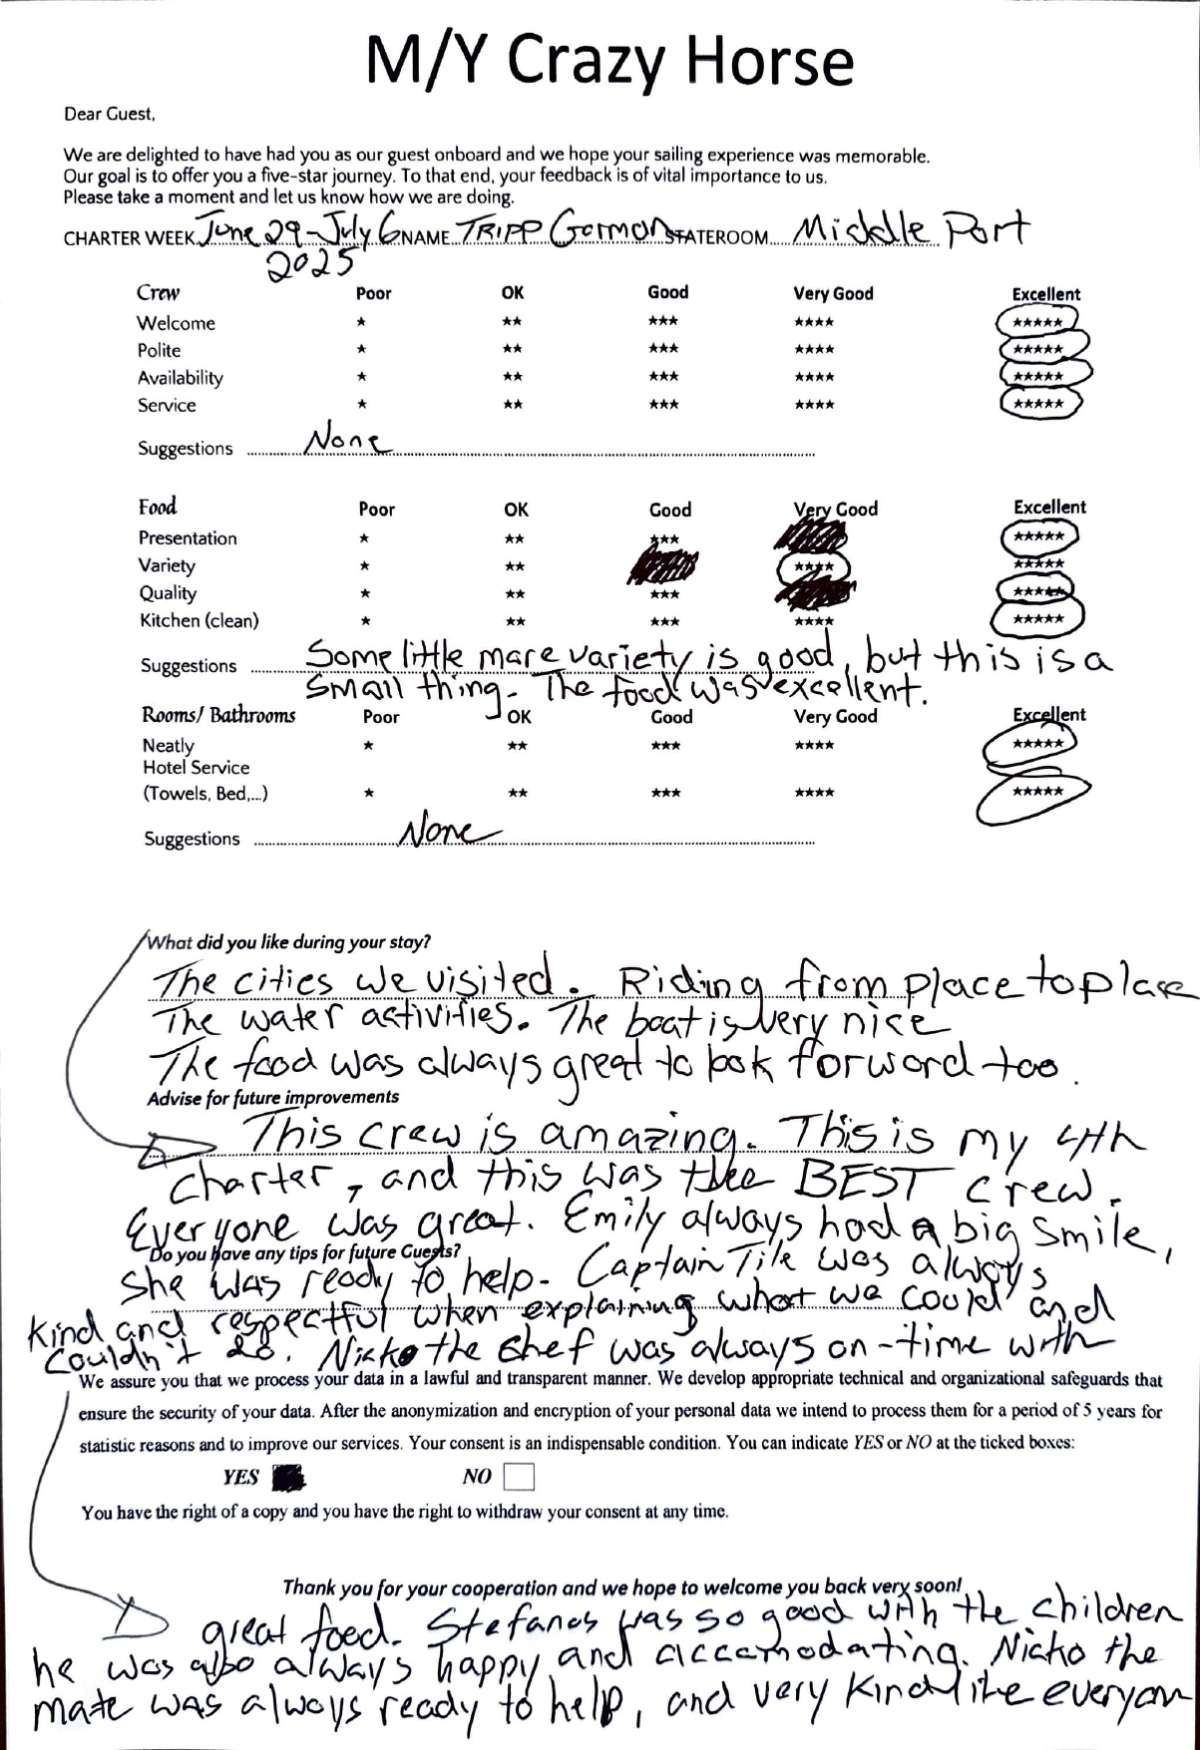 M/Y Crazy Horse
Dear Guest,
We are delighted to have had you as our guest onboard and we hope your sailing experience was memorable.
Our goal is to offer you a five-star journey. To that end, your feedback is of vital importance to us.
Please take a moment and let us know how we are doing.
CHARTER WEEK June 29-July 6 NAME TRIPP Gorman STATEROOM Middle Port
2025
Crew Poor OK Good Very Good Excellent
Welcome ★ ★★ ★★★ ★★★★ ★★★★★
Polite ★ ★★ ★★★ ★★★★ ★★★★★
Availability ★ ★★ ★★★ ★★★★ ★★★★★
Service ★ ★★ ★★★ ★★★★ ★★★★★
Suggestions None
Food Poor OK Good Very Good Excellent
Presentation ★ ★★ ★★★ ★★★★★
Variety ★ ★★ ★★★★ ★★★★★
Quality ★ ★★ ★★★ ★★★★★
Kitchen (clean) ★ ★★ ★★★ ★★★★ ★★★★★
Suggestions Some little more variety is good, but this is a
small thing. The food was excellent.
Rooms/ Bathrooms Poor OK Good Very Good Excellent
Neatly ★ ★★ ★★★ ★★★★ ★★★★★
Hotel Service
(Towels, Bed,...) ★ ★★ ★★★ ★★★★ ★★★★★
Suggestions None
What did you like during your stay?
The cities we visited. Riding from place to place
The water activities. The boat is very nice
The food was always great to look forword too.
Advise for future improvements
This crew is amazing. This is my 4th
charter, and this was the BEST crew.
Everyone was great. Emily always had a big smile,
Do you have any tips for future Guests?
she was ready to help. Captain Tile was always
kind and respectful when explaining what we could and
couldn't do. Nicko the chef was always on-time with
We assure you that we process your data in a lawful and transparent manner. We develop appropriate technical and organizational safeguards that
ensure the security of your data. After the anonymization and encryption of your personal data we intend to process them for a period of 5 years for
statistic reasons and to improve our services. Your consent is an indispensable condition. You can indicate YES or NO at the ticked boxes:
YES NO
You have the right of a copy and you have the right to withdraw your consent at any time.
Thank you for your cooperation and we hope to welcome you back very soon!
great food. Stefanos was so good with the children
he was also always happy and accamodating. Nicko the
mate was always ready to help, and very kind like everyon